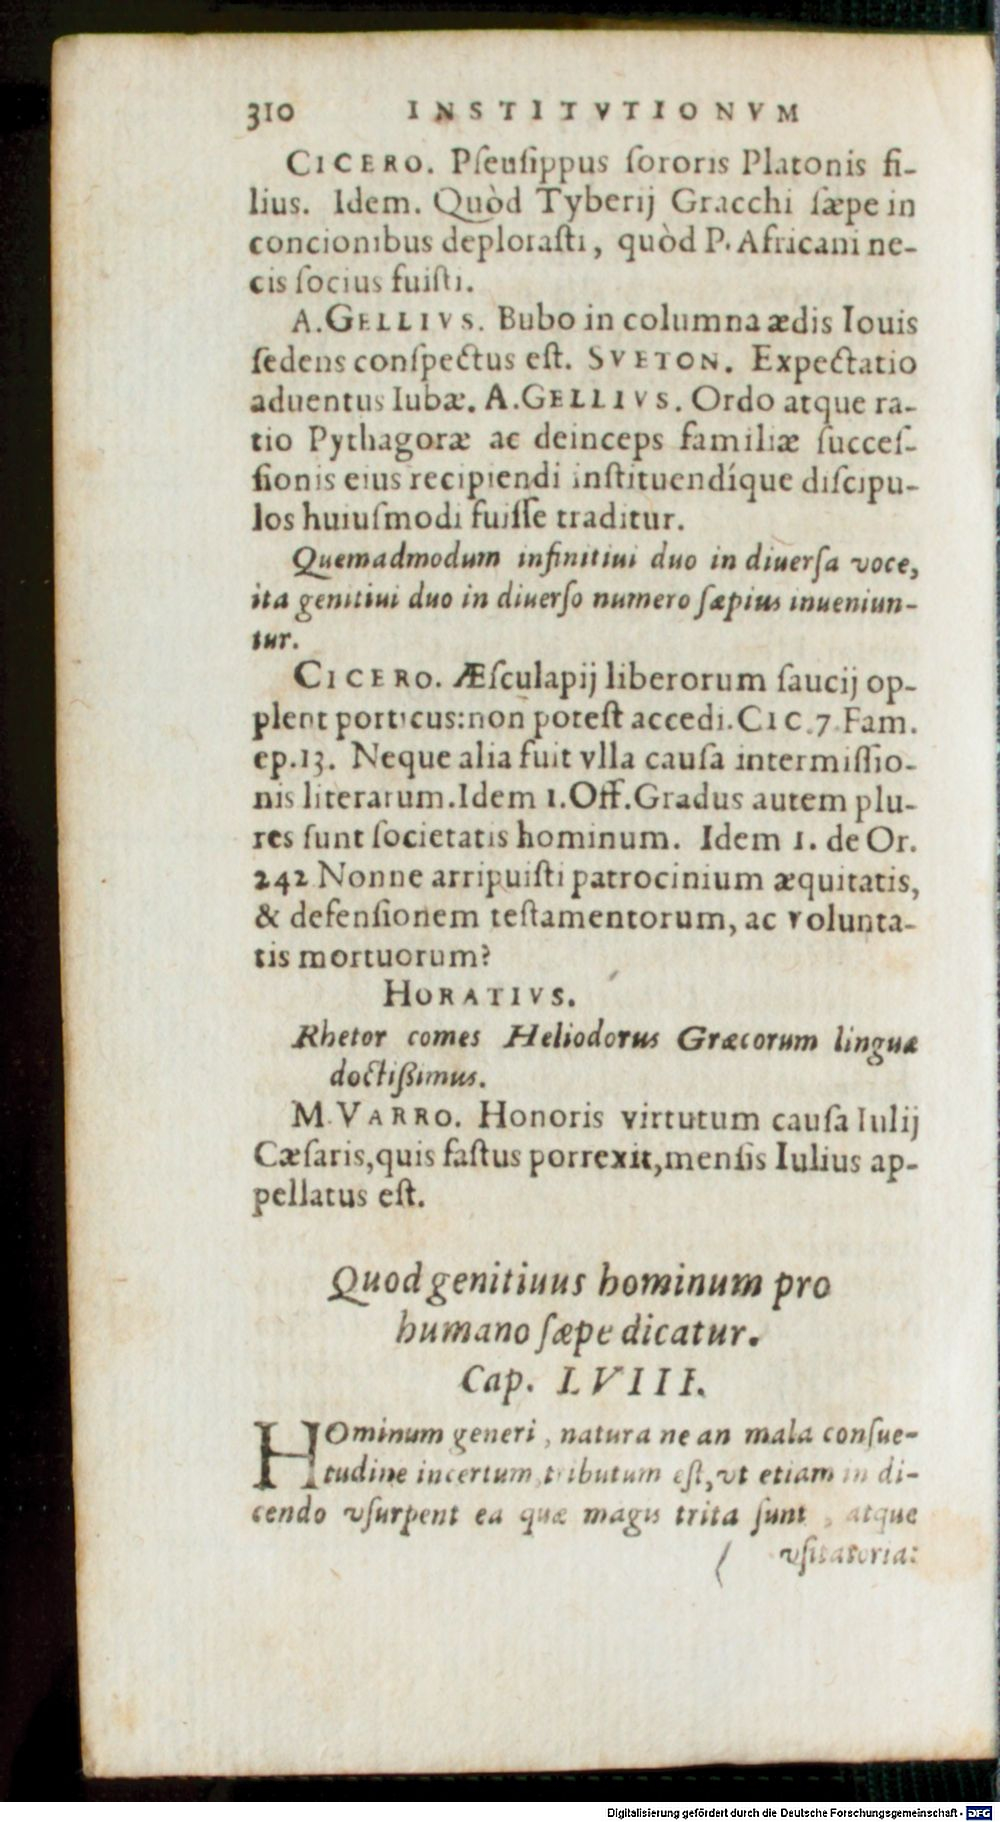 310 INSTITVTIONVM
CICERO. Pſeuſippus ſororis Platonis fi-
lius. Idem. Quòd Tyberij Gracchi ſæpe in
concionibus deploraſti, quòd P. Africani ne-
cis ſocius fuiſti.
A. GELLIVS. Bubo in columna ædis Iouis
ſedens conſpectus eſt. SVETON. Expectatio
aduentus Iubæ. A. GELLIVS. Ordo atque ra-
tio Pythagoræ ac deinceps familiæ ſucceſ-
ſionis eius recipiendi inſtituendíque diſcipu-
los huiuſmodi fuiſſe traditur.
Quemadmodum infinitiui duo in diuerſa voce,
ita genitiui duo in diuerſo numero ſæpius inueniun-
tur.
CICERO. Æſculapij liberorum ſaucij op-
plent porticus: non poteſt accedi. CIC. 7. Fam.
ep. 13. Neque alia fuit vlla cauſa intermiſſio-
nis literarum. Idem 1. Off. Gradus autem plu-
res ſunt ſocietatis hominum. Idem 1. de Or.
242 Nonne arripuiſti patrocinium æquitatis,
& defenſionem teſtamentorum, ac volunta-
tis mortuorum?
HORATIVS.
Rhetor comes Heliodorus Græcorum linguæ
doctißimus.
M. VARRO. Honoris virtutum cauſa Iulij
Cæſaris, quis faſtus porrexit, menſis Iulius ap-
pellatus eſt.
Quod genitiuus hominum pro
humano ſæpe dicatur.
Cap. LVIII.
HOminum generi, natura ne an mala conſue-
tudine incertum, tributum eſt, vt etiam in di-
cendo vſurpent ea quæ magis trita ſunt, atque
vſitatoria:
Digitalisierung gefördert durch die Deutsche Forschungsgemeinschaft - DFG